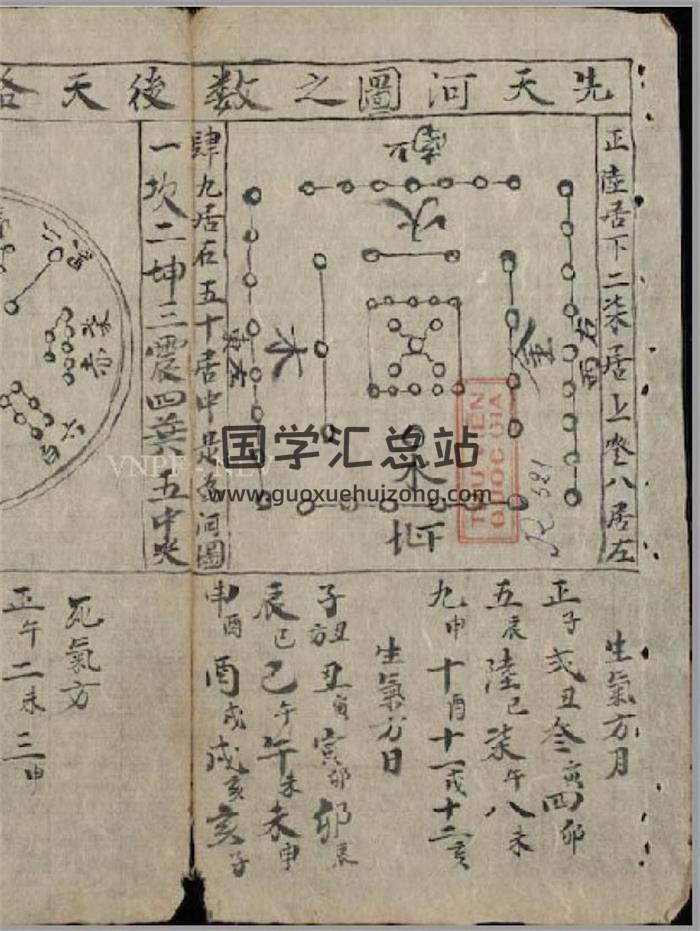 先天河圖之数後天洛
正陸居下二柒居上叁八居左
肆九居右五十居中是為河圖
一坎二坤三震四巽五中央
南
火
金
右
西
木
左
東
水
北
生氣方月
正子弍丑叁寅四卯
五辰陸巳柒午八未
九申十酉十一戌十二亥
生氣方日
子丑丑寅寅卯卯辰
辰巳巳午午未未申
申酉酉戌戌亥亥子
死氣方
正午二未三申
国学汇总站
www.guoxuehuizong.com
THƯ VIỆN
QUỐC GIA
R.321